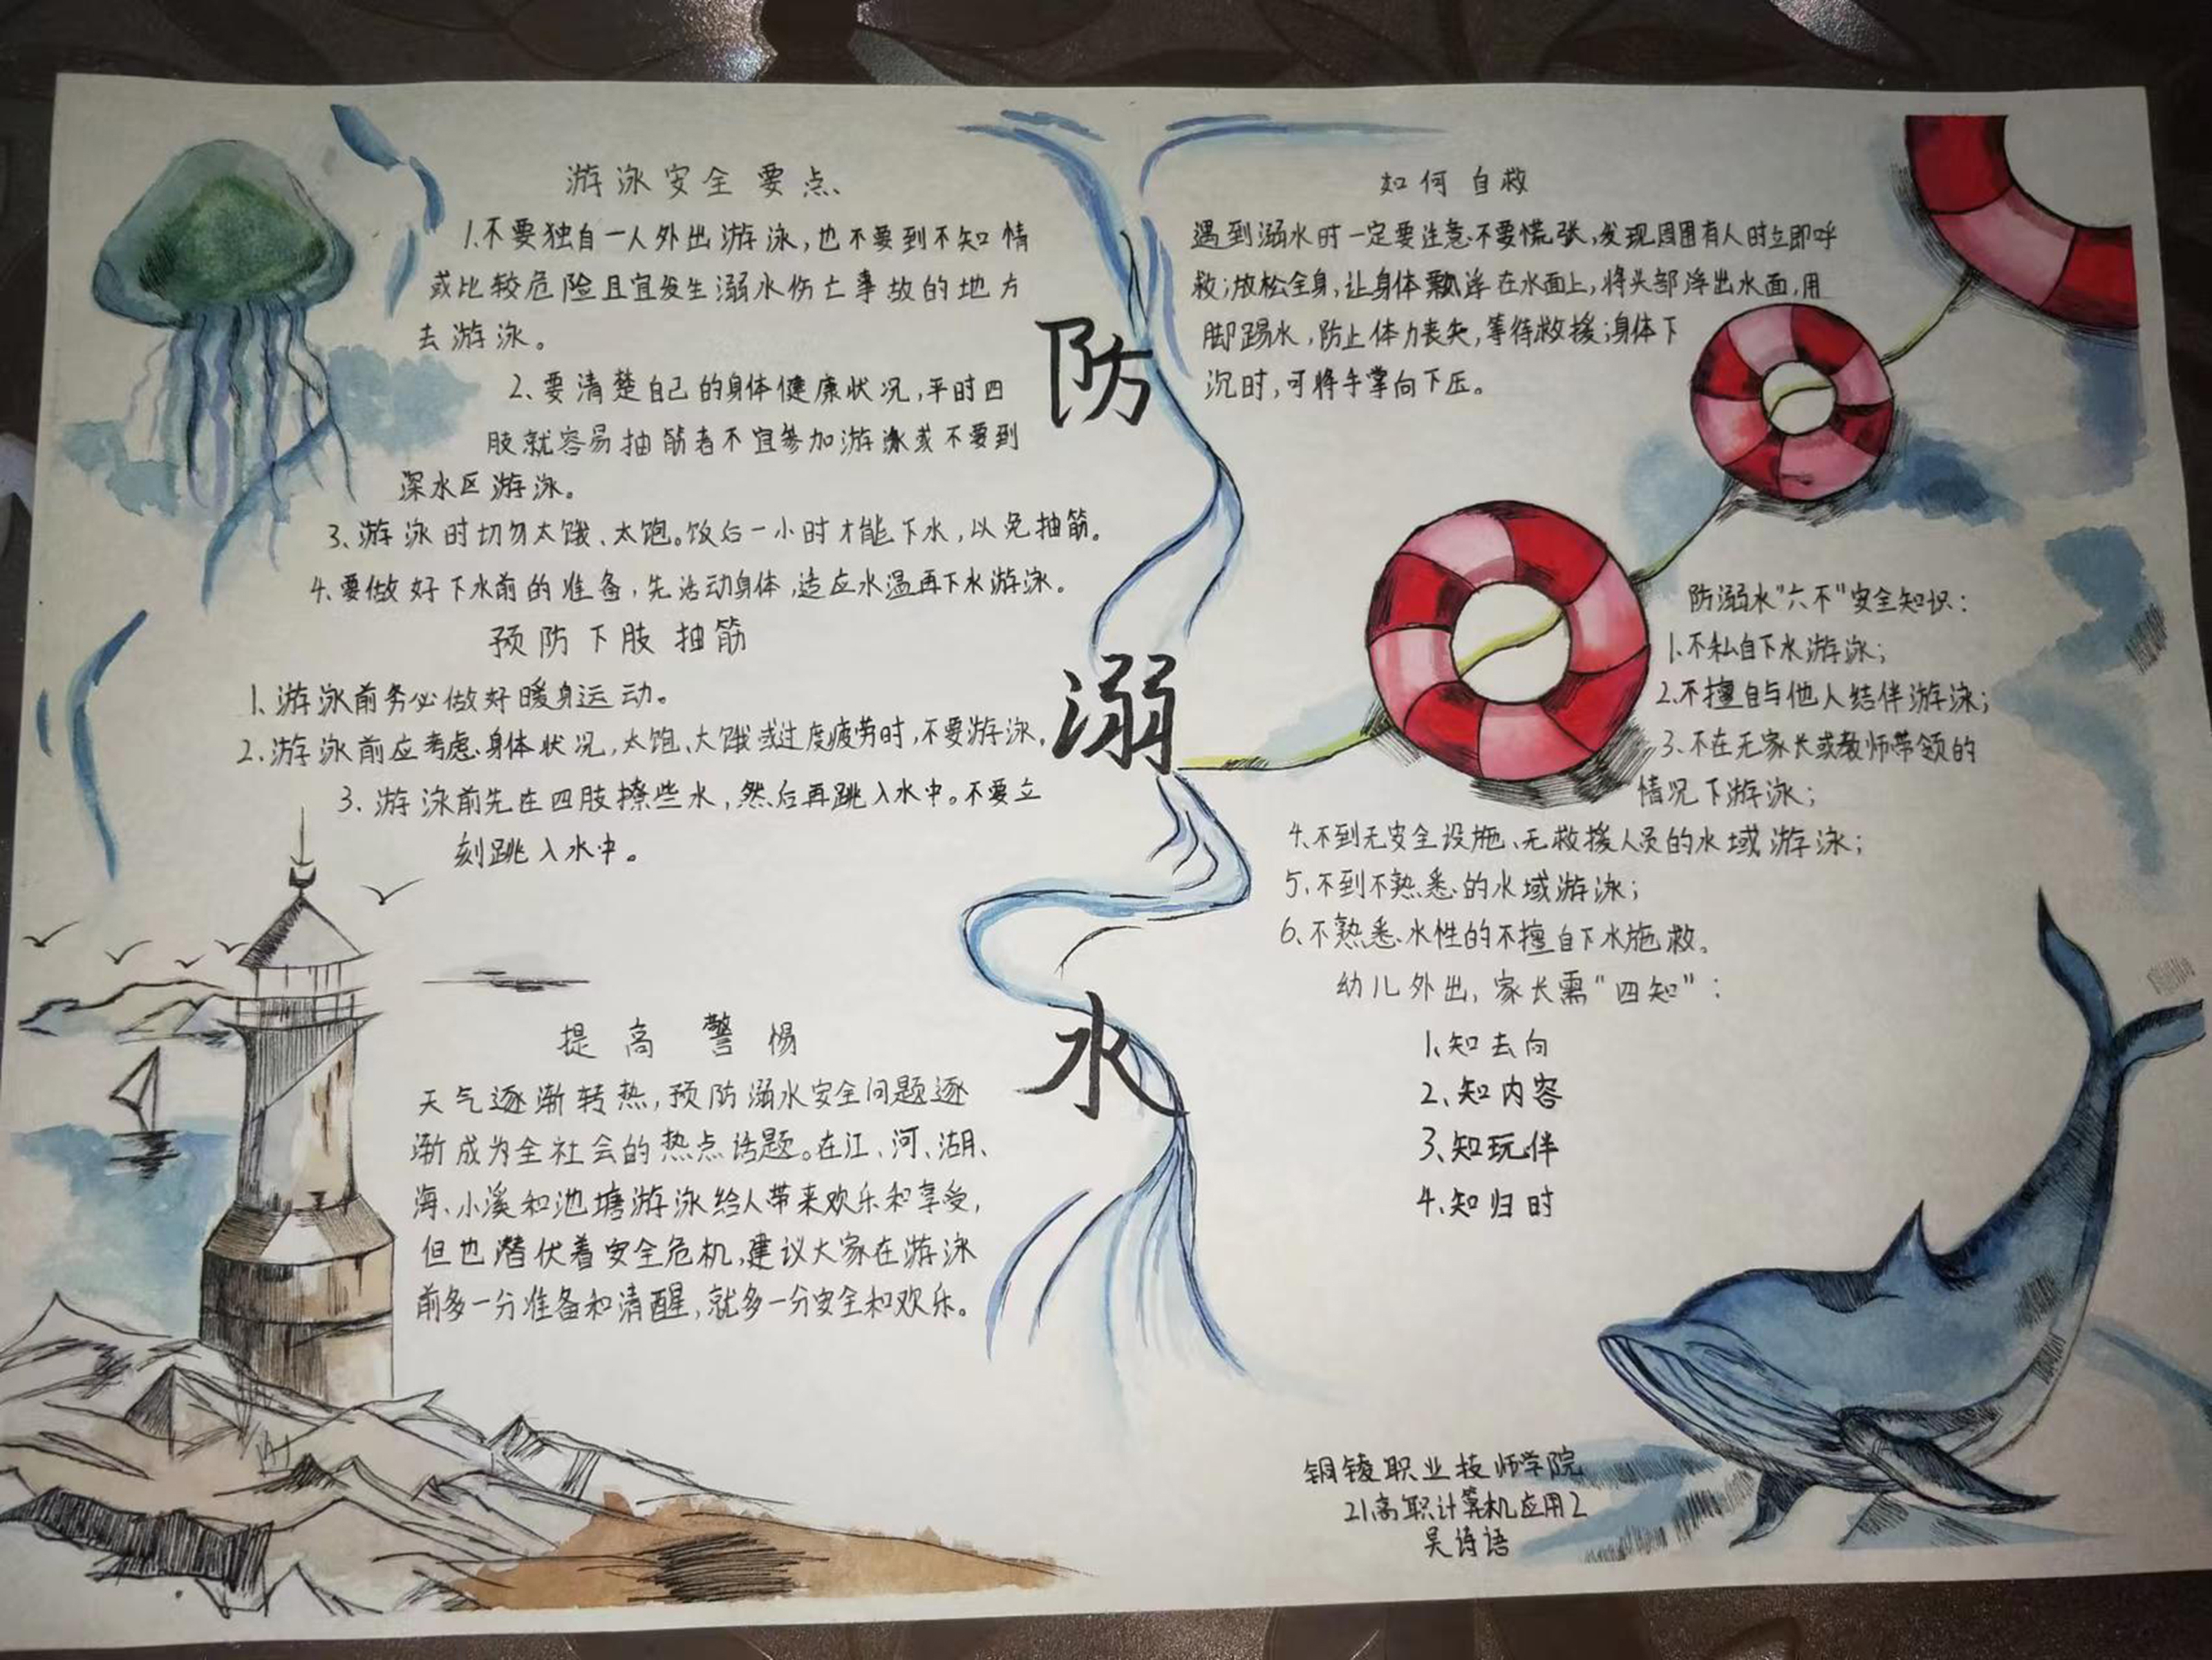 游泳安全要点
1.不要独自一人外出游泳,也不要到不知情
或比较危险且宜发生溺水伤亡事故的地方
去游泳。
2、要清楚自己的身体健康状况,平时四
肢就容易抽筋者不宜参加游泳或不要到
深水区游泳。
3、游泳时切勿太饿、太饱。饭后一小时才能下水,以免抽筋。
4、要做好下水前的准备,先活动身体,适应水温再下水游泳。
预防下肢抽筋
1、游泳前务必做好暖身运动。
2、游泳前应考虑身体状况,太饱、大饿或过度疲劳时,不要游泳。
3、游泳前先在四肢撩些水,然后再跳入水中。不要立
刻跳入水中。
提高警惕
天气逐渐转热,预防溺水安全问题逐
渐成为全社会的热点话题。在江、河、湖、
海、小溪和池塘游泳给人带来欢乐和享受,
但也潜伏着安全危机,建议大家在游泳
前多一分准备和清醒,就多一分安全和欢乐。
防
溺
水
如何自救
遇到溺水时一定要注意不要慌张,发现周围有人时立即呼
救;放松全身,让身体飘浮在水面上,将头部浮出水面,用
脚踢水,防止体力丧失,等待救援;身体下
沉时,可将手掌向下压。
防溺水"六不"安全知识:
1、不私自下水游泳;
2、不擅自与他人结伴游泳;
3、不在无家长或教师带领的
情况下游泳;
4、不到无安全设施、无救援人员的水域游泳;
5、不到不熟悉的水域游泳;
6、不熟悉水性的不擅自下水施救。
幼儿外出,家长需"四知":
1、知去向
2、知内容
3、知玩伴
4、知归时
铜陵职业技师学院
21高职计算机应用2
吴诗语